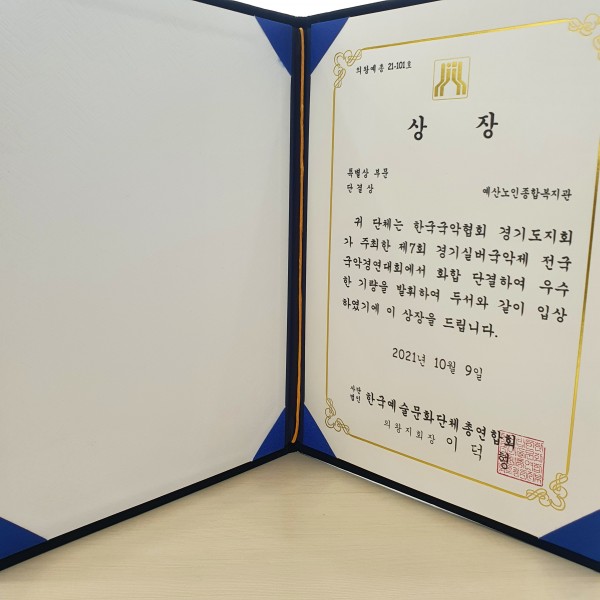 의왕예총 21-101호
상 장
특별상 부문
단결상
예산노인종합복지관
귀 단체는 한국국악협회 경기도지회
가 주최한 제7회 경기실버국악제 전국
국악경연대회에서 화합 단결하여 우수
한 기량을 발휘하여 두서와 같이 입상
하였기에 이 상장을 드립니다.
2021년 10월 9일
사단법인 한국예술문화단체총연합회
의왕지회장 이덕형